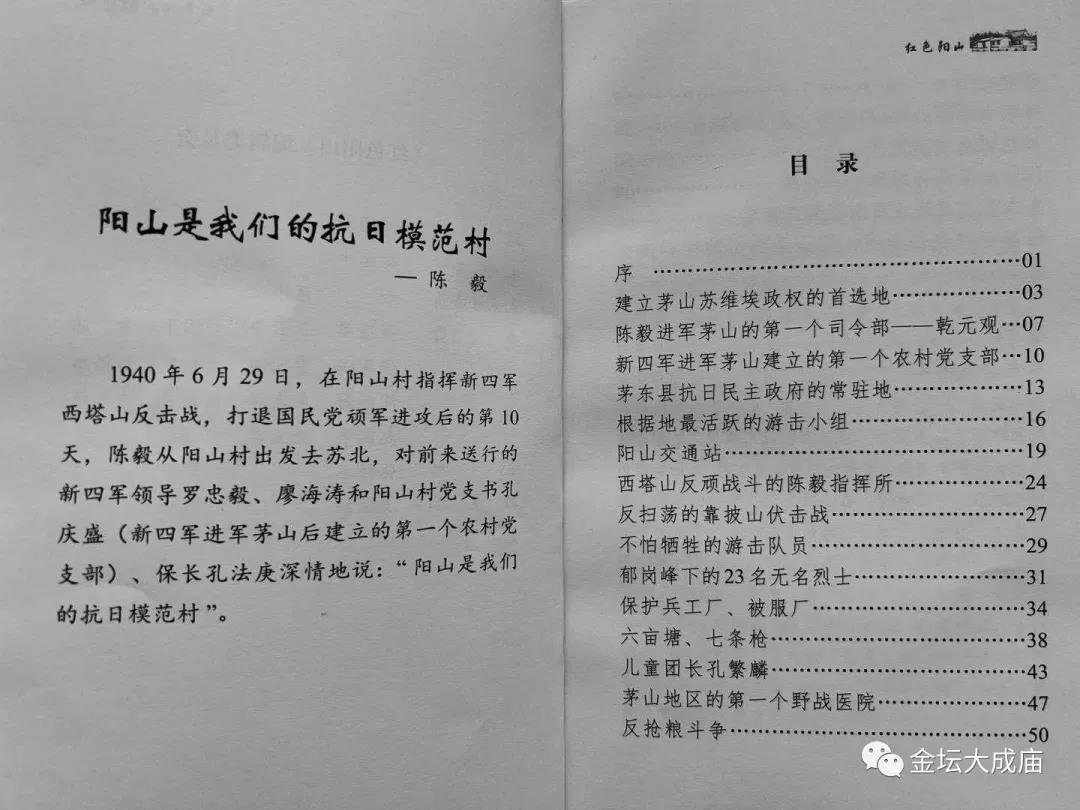 阳山是我们的抗日模范村
—陈 毅
1940年6月29日，在阳山村指挥新四军
西塔山反击战，打退国民党顽军进攻后的第10
天，陈毅从阳山村出发去苏北，对前来送行的
新四军领导罗忠毅、廖海涛和阳山村党支书孔
庆盛（新四军进军茅山后建立的第一个农村党
支部）、保长孔法庚深情地说：“阳山是我们
的抗日模范村”。
红色阳山
目 录
序 ……………………………………01
建立茅山苏维埃政权的首选地…………03
陈毅进军茅山的第一个司令部——乾元观…07
新四军进军茅山建立的第一个农村党支部…10
茅东县抗日民主政府的常驻地…………13
根据地最活跃的游击小组………………16
阳山交通站………………………………19
西塔山反顽战斗的陈毅指挥所…………24
反扫荡的靠披山伏击战…………………27
不怕牺牲的游击队员……………………29
郁岗峰下的23名无名烈士………………31
保护兵工厂、被服厂……………………34
六亩塘、七条枪…………………………38
儿童团长孔繁麟…………………………43
茅山地区的第一个野战医院……………47
反抢粮斗争………………………………50
金坛大成庙